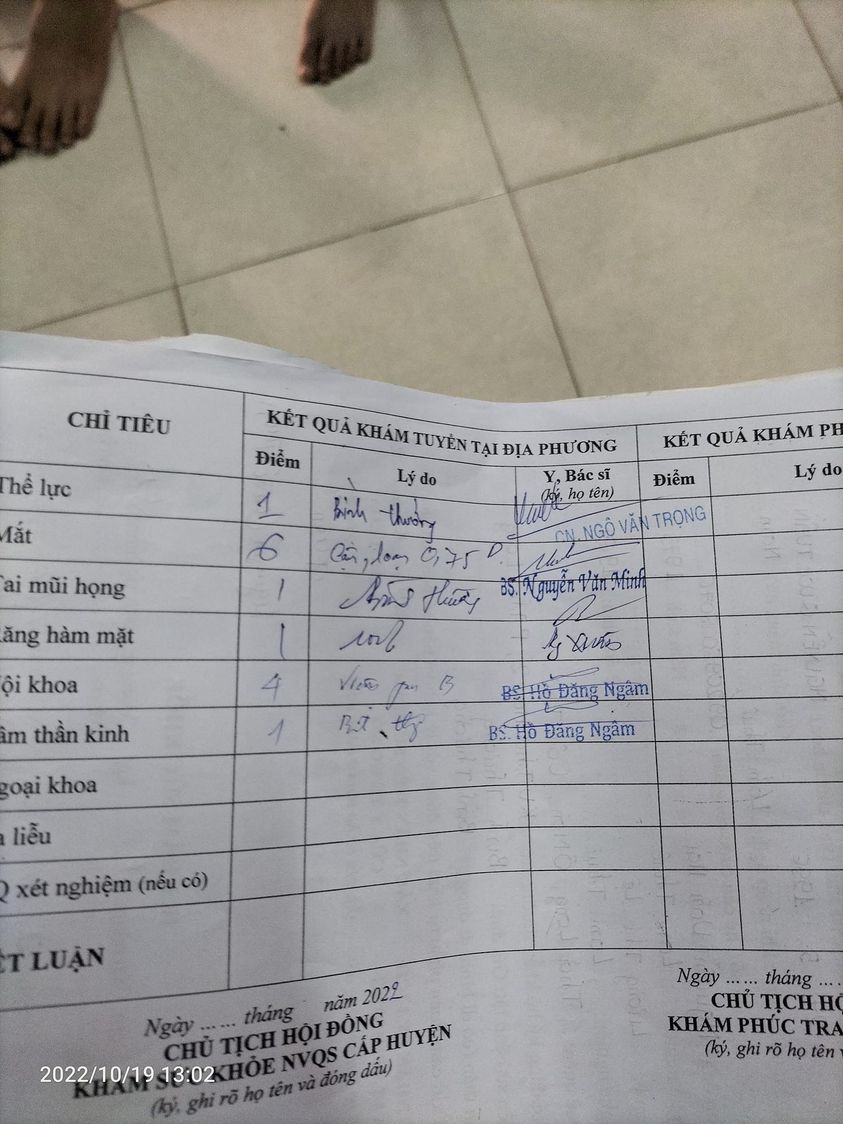 CHỈ TIÊU
KẾT QUẢ KHÁM TUYỂN TẠI ĐỊA PHƯƠNG
KẾT QUẢ KHÁM PH
Điểm
Lý do
Y, Bác sĩ
(ký, họ tên)
Điểm
Lý do
Thể lực
1
Bình thường
CN. NGÔ VĂN TRỌNG
Mắt
6
0,75 D.
BS. Nguyễn Văn Minh
Tai mũi họng
1
Bình thường
ăng hàm mặt
1
ội khoa
4
Viêm gan B
BS. Hồ Đăng Ngâm
âm thần kinh
1
BS. Hồ Đăng Ngâm
goại khoa
a liễu
Q xét nghiệm (nếu có)
ẾT LUẬN
Ngày ...... tháng năm 2022
CHỦ TỊCH HỘI ĐỒNG
KHÁM SỨC KHỎE NVQS CẤP HUYỆN
(ký, ghi rõ họ tên và đóng dấu)
Ngày ...... tháng ...
CHỦ TỊCH HỘ
KHÁM PHÚC TRA
(ký, ghi rõ họ tên v
2022/10/19 13:02